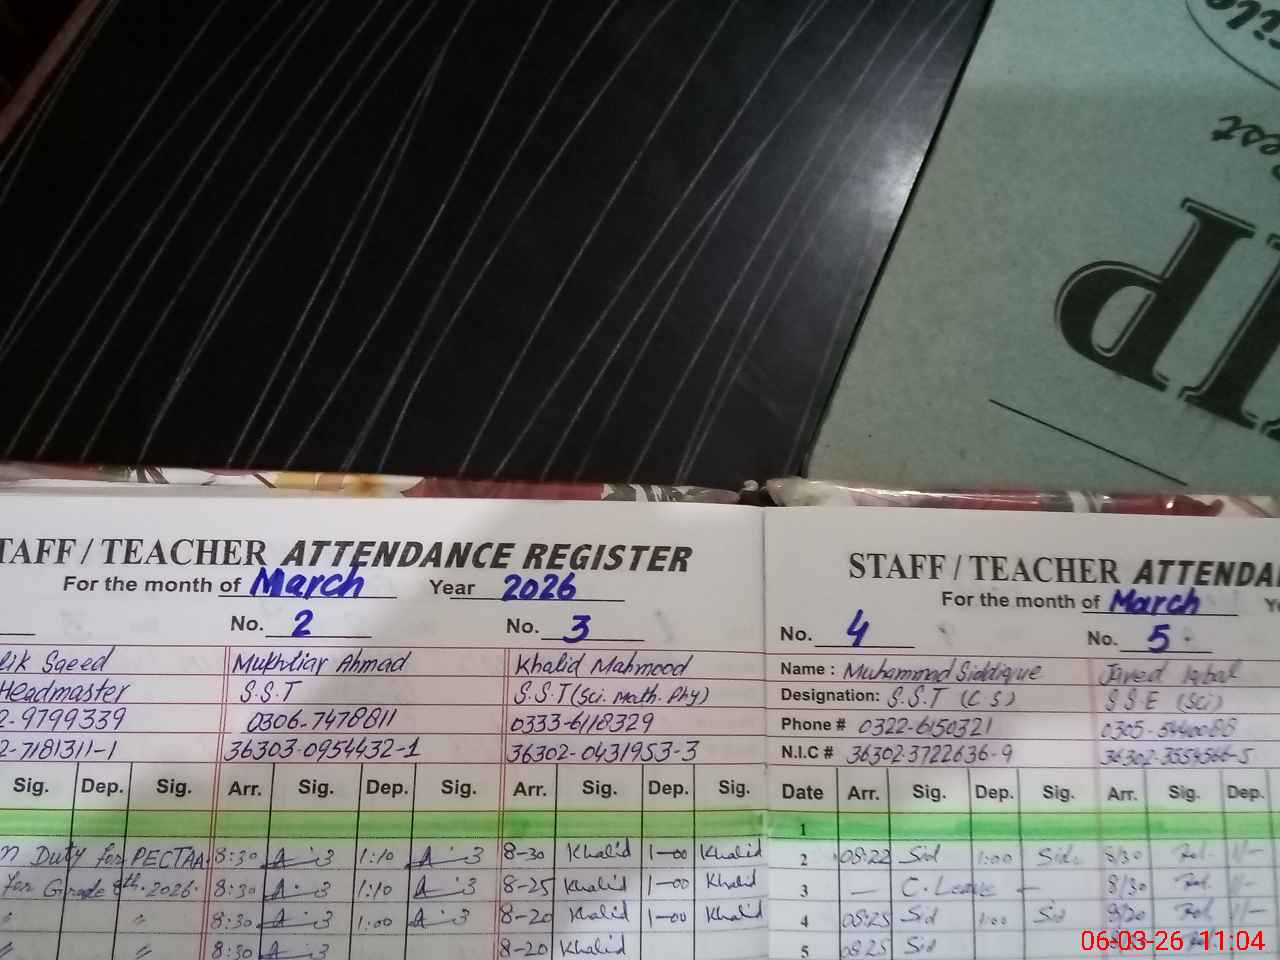 TAFF / TEACHER ATTENDANCE REGISTER
For the month of March Year 2026
No. 2 No. 3
lik Saeed Mukhtiar Ahmad Khalid Mahmood
Headmaster S.S.T S.S.T (Sci. Math. Phy)
2-9799339 0306-7478811 0333-6118329
2-7181311-1 36303-0954432-1 36302-0431953-3
Sig. Dep. Sig. Arr. Sig. Dep. Sig. Arr. Sig. Dep. Sig.
n Duty for PECTAA 8:30 1:10 8-30 Khalid 1-00 Khalid
for Grade 8th 2026. 8:30 1:10 8-25 Khalid 1-00 Khalid
" " 8:30 1:00 8-20 Khalid 1-00 Khalid
" " 8:30 8-20 Khalid
STAFF / TEACHER ATTENDA
For the month of March Ye
No. 4 No. 5
Name : Muhammad Siddique Javed Iqbal
Designation: S.S.T (C.S) S S E (Sci)
Phone # 0322-6150321 0305-5440088
N.I.C # 36302-3722636-9 36302-3554566-5
Date Arr. Sig. Dep. Sig. Arr. Sig. Dep.
1
2 08:22 Sid 1:00 Sid 8/30
3 — C. Leave — 8/30
4 08:25 Sid 1:00 Sid 8/20
5 08:25 Sid
06-03-26 11:04
file
est
IP